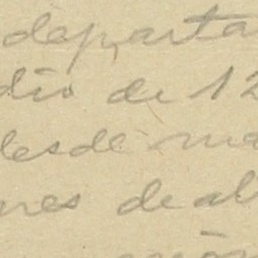 departa
dio de 12
desde ma
nes de al